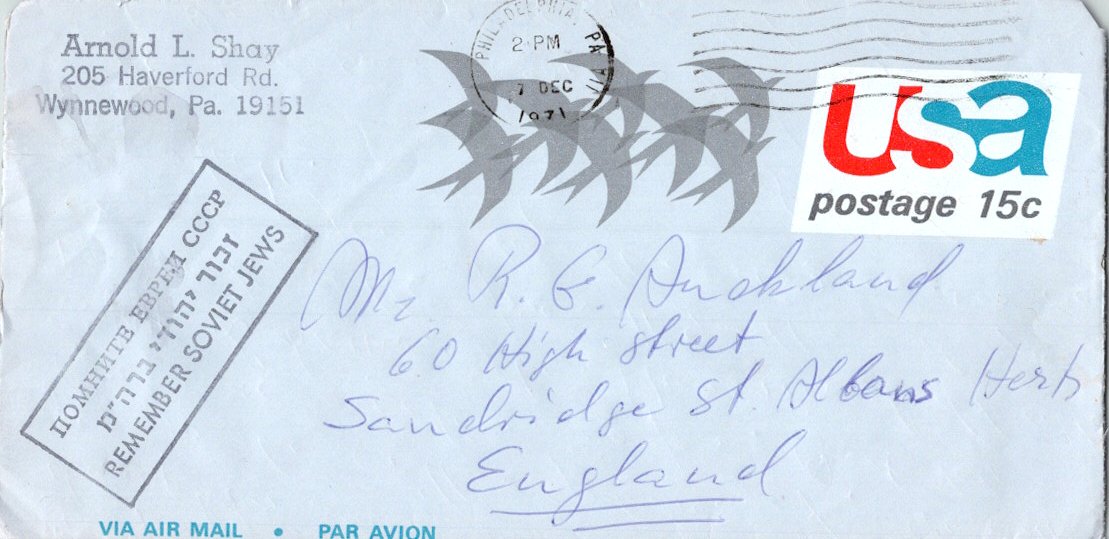 Arnold L. Shay
205 Haverford Rd.
Wynnewood, Pa. 19151
PHILADELPHIA, PA
2 PM
7 DEC
1971
usa
postage 15c
ПОМНИТЕ ЕВРЕИ СССР
זכור יהודי ברה"מ
REMEMBER SOVIET JEWS
Mr R. G. Auckland
60 High Street
Sandridge St. Albans Herts
England
VIA AIR MAIL • PAR AVION